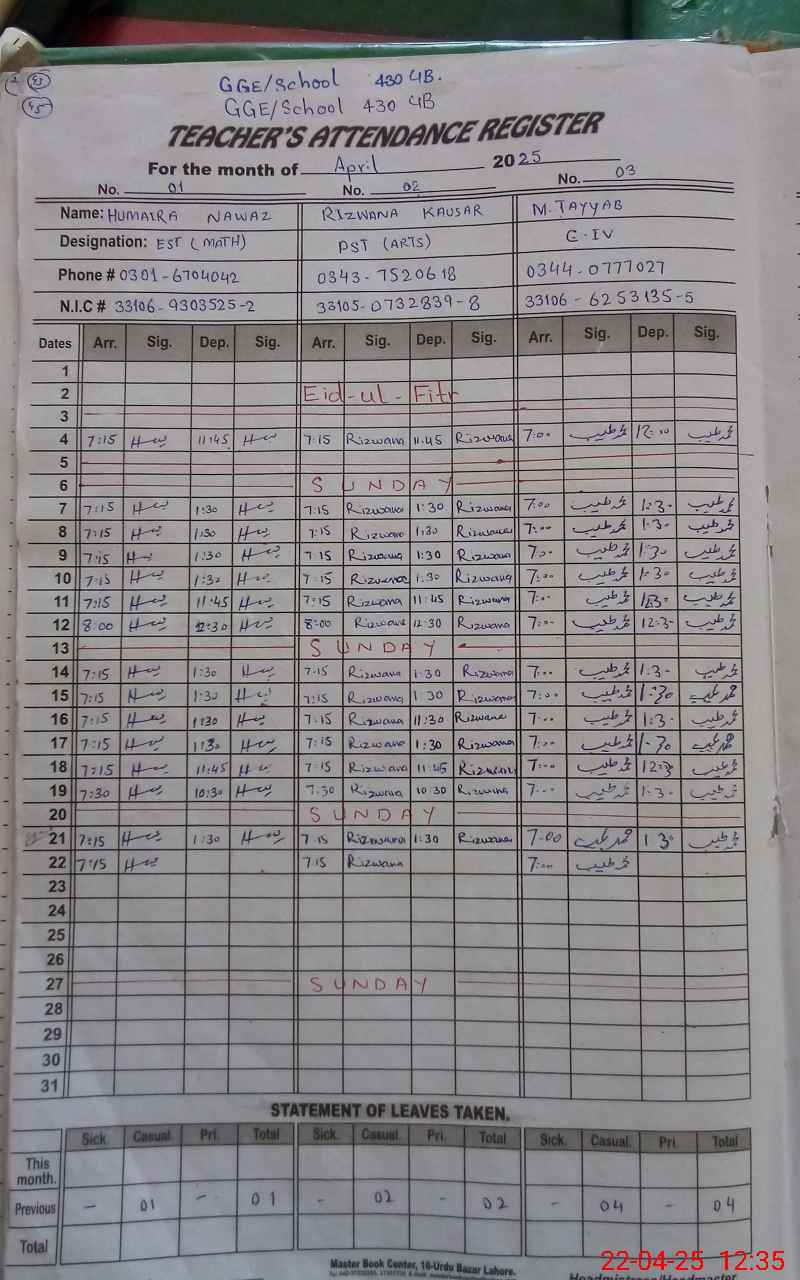 GGE/School 430 GB.
GGE/School 430 GB
TEACHER'S ATTENDANCE REGISTER
For the month of April 2025
No. 01 No. 02 No. 03
Name: HUMAIRA NAWAZ RIZWANA KAUSAR M. TAYYAB
Designation: EST (MATH) PST (ARTS) C-IV
Phone # 0301-6704042 0343-7520618 0344-0777027
N.I.C # 33106-9303525-2 33105-0732839-8 33106-6253135-5
Dates Arr. Sig. Dep. Sig. Arr. Sig. Dep. Sig. Arr. Sig. Dep. Sig.
1
2 Eid-ul-Fitr
3
4 7:15 11:45 7:15 Rizwana 11.45 Rizwana 7:00 محمد طیب 12:00 محمد طیب
5
6 SUNDAY
7 7:15 1:30 7:15 Rizwana 1:30 Rizwana 7:00 محمد طیب 1:30 محمد طیب
8 7:15 1:30 7:15 Rizwana 1:30 Rizwana 7:00 محمد طیب 1:30 محمد طیب
9 7:15 1:30 7:15 Rizwana 1:30 Rizwana 7:00 محمد طیب 1:30 محمد طیب
10 7:15 1:30 7:15 Rizwana 1:30 Rizwana 7:00 محمد طیب 1:30 محمد طیب
11 7:15 11:45 7:15 Rizwana 11:45 Rizwana 7:00 محمد طیب محمد طیب
12 8:00 12:30 8:00 Rizwana 12:30 Rizwana 7:00 محمد طیب 12:30 محمد طیب
13 SUNDAY
14 7:15 1:30 7:15 Rizwana 1:30 Rizwana 7:00 محمد طیب 1:30 محمد طیب
15 7:15 1:30 7:15 Rizwana 1:30 Rizwana 7:00 محمد طیب 1:30 محمد طیب
16 7:15 1:30 7:15 Rizwana 11:30 Rizwana 7:00 محمد طیب 1:30 محمد طیب
17 7:15 1:30 7:15 Rizwana 1:30 Rizwana 7:00 محمد طیب 1:30 محمد طیب
18 7:15 11:45 7:15 Rizwana 11:45 Rizwana 7:00 محمد طیب 12:30 محمد طیب
19 7:30 10:30 7:30 Rizwana 10:30 Rizwana 7:00 محمد طیب 1:30 محمد طیب
20 SUNDAY
21 7:15 1:30 7:15 Rizwana 1:30 Rizwana 7:00 محمد طیب 1:30 محمد طیب
22 7:15 7:15 Rizwana 7:00 محمد طیب
23
24
25
26
27 SUNDAY
28
29
30
31
STATEMENT OF LEAVES TAKEN.
Sick. Casual. Pri. Total Sick. Casual. Pri. Total Sick. Casual. Pri. Total
This month.
Previous - 01 - 01 - 02 - 02 - 04 - 04
Total
Master Book Center, 16-Urdu Bazar Lahore.
Headmistress/Headmaster
22-04-25 12:35